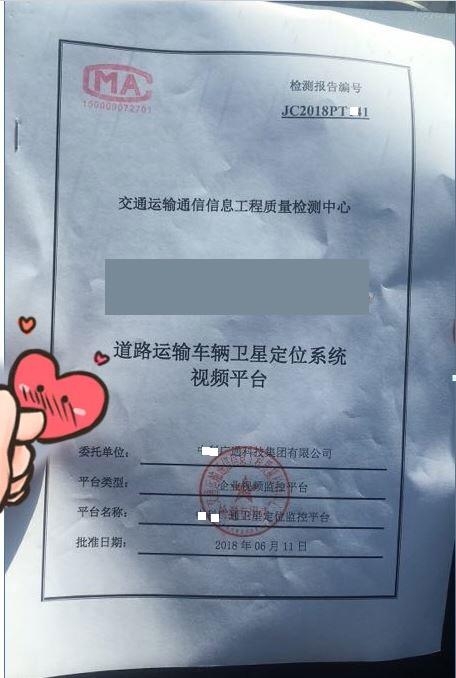 MA
150009072701
检测报告编号
JC2018PT 41
交通运输通信信息工程质量检测中心
道路运输车辆卫星定位系统
视频平台
委托单位: 通科技集团有限公司
平台类型: 企业视频监控平台
平台名称: 通卫星定位监控平台
批准日期: 2018 年 06 月 11 日